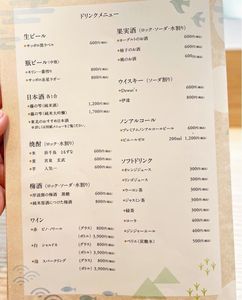 ドリンクメニュー
生ビール
•サッポロ黒ラベル 600円(税込)
瓶ビール(中瓶)
•キリン一番搾り 800円(税込)
•サッポロ赤星ラガー 800円(税込)
日本酒 各1合
1,200円(税込)
1,700円(税込)
•東北のおすすめ日本酒
焼酎(ロック・ソーダ・水割り)
•米 600円(税込)
•麦 600円(税込)
•芋 600円(税込)
梅酒(ロック・ソーダ・水割り)
600円(税込)
600円(税込)
ワイン
•赤 ピノ・ノワール (グラス) 800円(税込)
(ボトル) 3,900円(税込)
•白 シャルドネ (グラス) 800円(税込)
(ボトル) 3,900円(税込)
•泡 スパークリング (グラス) 800円(税込)
(ボトル) 3,900円(税込)
果実酒(ロック・ソーダ・水割り)
•ヨーグルトのお酒 600円(税込)
•柚子のお酒 600円(税込)
•桃のお酒 600円(税込)
ウイスキー(ソーダ割り)
•Dewar's 600円(税込)
600円(税込)
ノンアルコール
•プレミアムノンアルコールビール 600円(税込)
200ml 1,200円(税込)
ソフトドリンク
•オレンジジュース 300円(税込)
•リンゴジュース 300円(税込)
•ウーロン茶 300円(税込)
•ジャスミン茶 300円(税込)
•緑茶 300円(税込)
•コーラ 300円(税込)
•ジンジャーエール 300円(税込)
•ペリエ(炭酸水) 500円(税込)